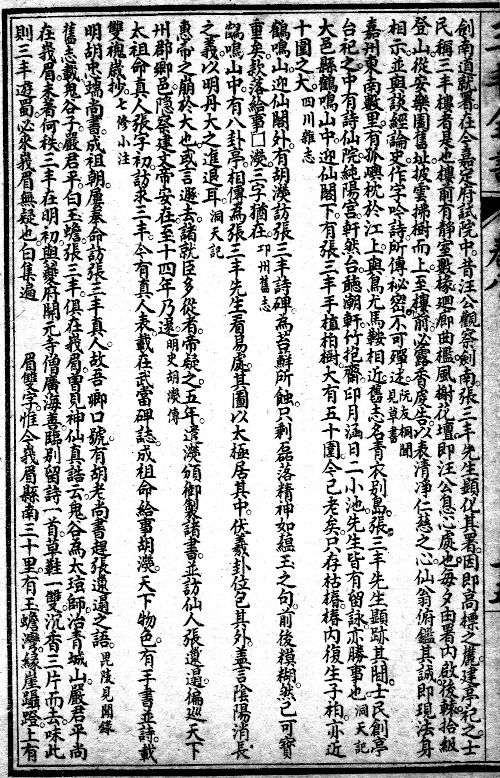 劍南道就署在今嘉定府試院中昔汪公觀察劍南張三丰先生顯化其署因即高標之麓建亭祀之士
民稱三丰樓者是也樓前有靜室數椽廻廊曲檻風榭花壇即汪公息心處也每夕由署內啟後轅拾級
登山從安樂園舊址披雲拂樹而上至樓前必露香虔告以表清凈仁慈之心仙翁俯鑑其誠即現法身
相示並與談經論史作字吟詩所傳祕密不可殫述 見阮友桐閒草書
嘉州東南數里有孤嶼枕於江上與烏尤馬鞍相近舊志名青衣別島張三丰先生顯跡其間士民創亭
台祀之中有詩仙院純陽宮軒然台聽潮軒竹抱齋印月涵日二小池先生皆有留詠亦勝事也 洞天記
大邑縣鶴鳴山中迎仙閣下有張三丰手植柏樹大有五十圍今已老矣只存枯椿椿內復生子柏亦近
十圍之大 四川雜志
鶴鳴山迎仙閣外有胡濙訪張三丰詩碑為苔蘚所蝕只剩磊落精神如韞玉之句前後模糊然已可寶
重矣款落給事□濙三字猶在 邛州舊志
鶴鳴山中有八卦亭相傳為張三丰先生看易處其圖以太極居其中伏羲卦位包其外蓋言陰陽消長
之義以明丹大之進退耳 洞天記
惠帝之崩於大也或言遜去諸舊臣多從者帝疑之五年遣濙頒御製諸書並訪仙人張邋遢偏巡天下
州郡鄉邑隱察建文帝安在至十四年乃還 明史胡濙傳
太祖命真人張字初訪求三丰今有真人表載在武當碑誌成祖命給事胡濙天下物色有手書並詩載
雙槐歲抄 七修小注
明胡忠端尚書成祖朝屢奉命訪張三丰真人故吾鄉口號有胡老尚書趕張邋遢之語 毘陵見聞錄
舊志載鬼谷子嚴君平白玉蟾張三丰俱在我眉曾貝神仙真誥云鬼谷為太玹師治青城山嚴君平尚
在我眉未著何秩三丰在明初與夔府開元寺僧廣海善臨別留詩一首草鞋一雙沉香三片而去味此
則三丰遊蜀必來我眉無疑也 白集遍 眉雙字惟今我眉縣南三十里有玉蟾灣緣崖躡蹬上有